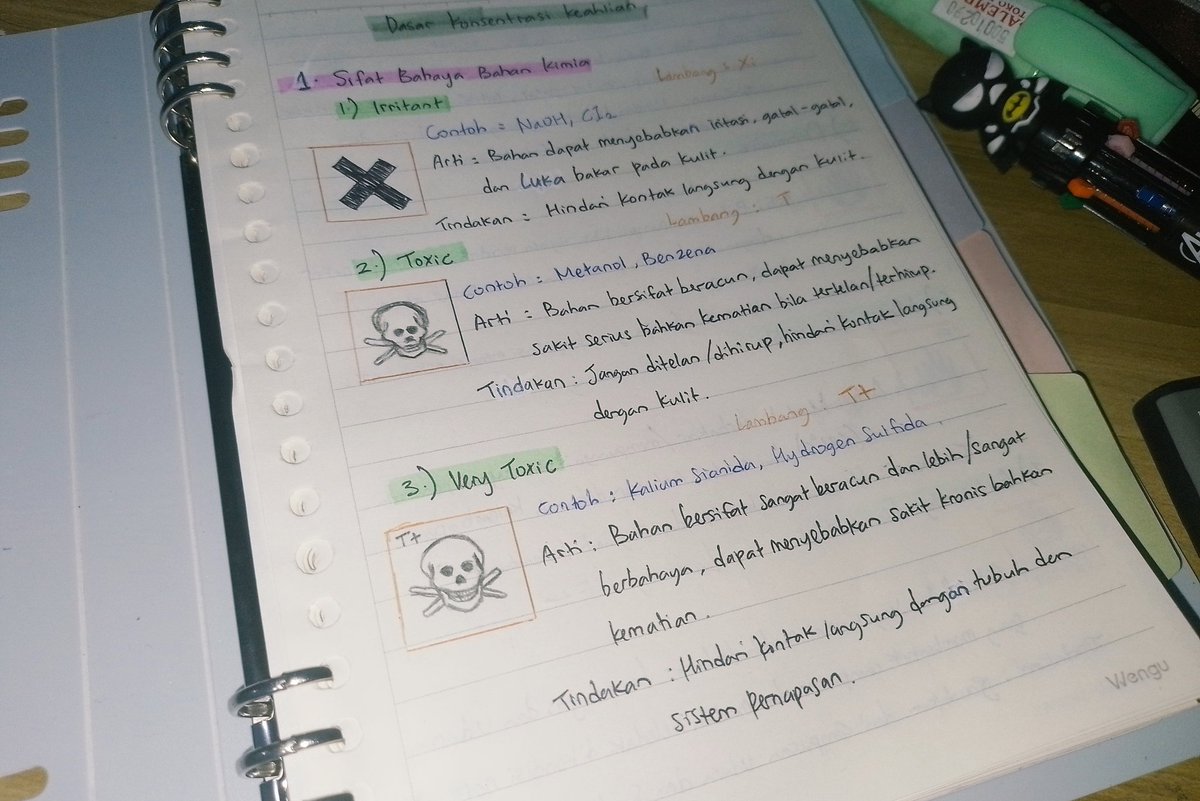 Dasar Konsentrasi Keahlian
1. Sifat Bahaya Bahan Kimia
Lambang : Xi
1) Irritant
Contoh = NaOH, Cl₂
Arti : Bahan dapat menyebabkan iritasi, gatal-gatal,
dan Luka bakar pada kulit.
Tindakan = Hindari kontak langsung dengan kulit.
Lambang : T
2.) Toxic
Contoh : Metanol, Benzena
Arti : Bahan bersifat beracun, dapat menyebabkan
sakit serius bahkan kematian bila tertelan/terhirup.
Tindakan : Jangan ditelan/dihirup, hindari kontak langsung
dengan kulit.
Lambang : T+
3.) Very Toxic
Contoh : Kalium Sianida, Hydrogen Sulfida.
T+
Arti : Bahan bersifat sangat beracun dan lebih/sangat
berbahaya, dapat menyebabkan sakit kronis bahkan
kematian.
Tindakan : Hindari kontak langsung dengan tubuh den
sistem pernapasan.
Wengu